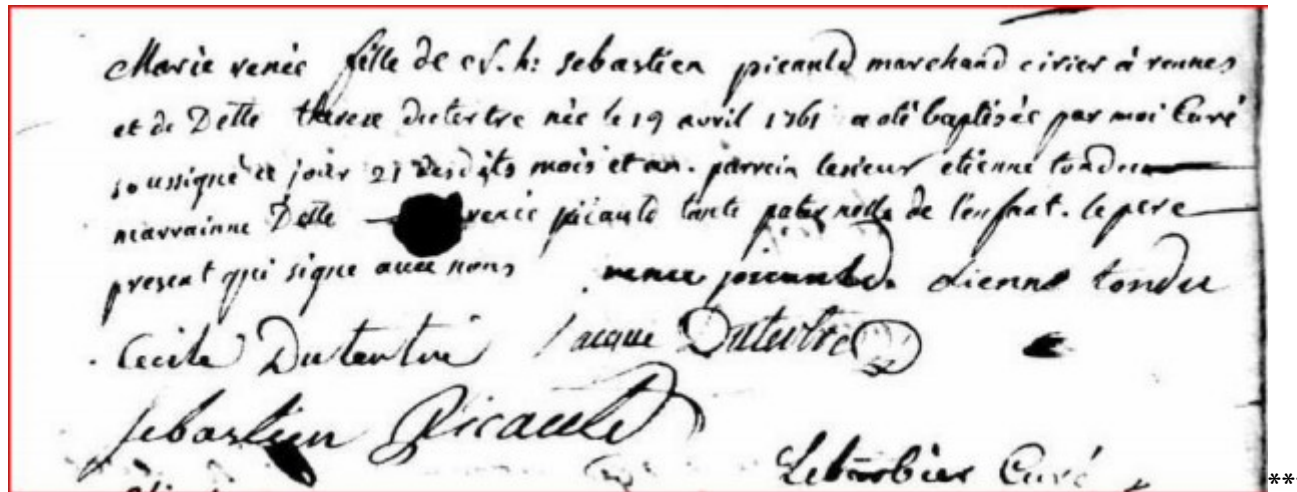 Marie renée fille de h: sebastien picault marchand cirier à rennes
et de Delle therese dutertre née le 19 avril 1761 a été baptisée par moi Curé
soussigné ce jour 21 desdits mois et an. parrein lesieur etienne tondu
marrainne Delle renée picault tante paternelle de l'enfant. le pere
present qui signe avec nous renee picault. etienne tondu
Cecile Dutertre Jacque Dutertre
sebastien Picault
Lebarbier Curé
**